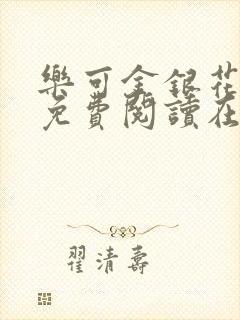 樂可金銀花
免費閱讀在
翟清壽